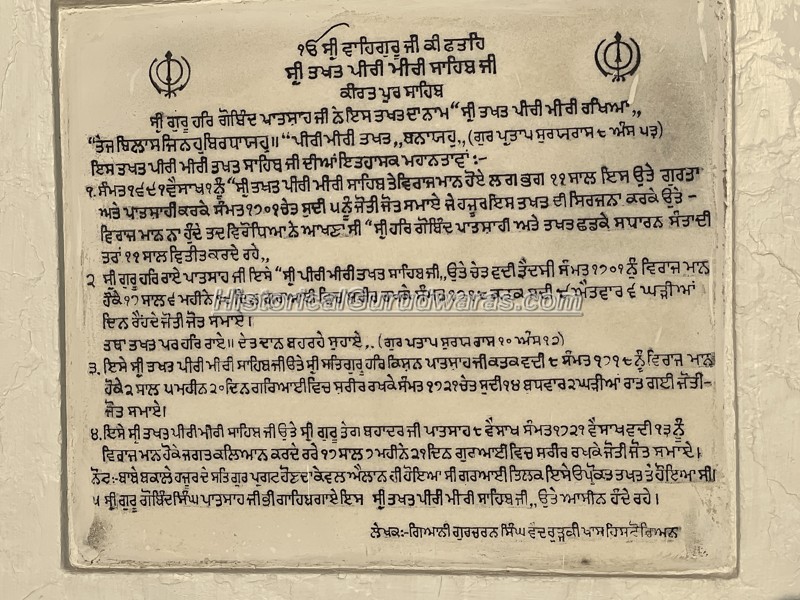 ੧ੳ ਸ੍ਰੀ ਵਾਹਿਗੁਰੂ ਜੀ ਕੀ ਫਤਹਿ
ਸ੍ਰੀ ਤਖਤ ਪੀਰੀ ਮੀਰੀ ਸਾਹਿਬ ਜੀ
ਕੀਰਤ ਪੁਰ ਸਾਹਿਬ
ਸ੍ਰੀ ਗੁਰੂ ਹਰਿ ਗੋਬਿੰਦ ਪਾਤਸ਼ਾਹ ਜੀ ਨੇ ਇਸ ਤਖਤ ਦਾ ਨਾਮ "ਸ੍ਰੀ ਤਖਤ ਪੀਰੀ ਮੀਰੀ ਰਖਿਆ,,
"ਤੇਜ ਬਿਲਾਸ ਜਿਨਹੁ ਬਿਰਧਾਯਹੁ॥ "ਪੀਰੀ ਮੀਰੀ ਤਖਤ,, ਬਨਾਯਹੁ,, (ਗੁਰ ਪ੍ਰਤਾਪ ਸੂਰਯ ਰਾਸ ੮ ਅੰਸ ੫੩)
ਇਸ ਤਖਤ ਪੀਰੀ ਮੀਰੀ ਤਖਤ ਸਾਹਿਬ ਜੀ ਦੀਆਂ ਇਤਹਾਸਕ ਮਹਾਨਤਾਵਾਂ :-
੧. ਸੰਮਤ ੧੬੯੧ ਵੈਸਾਖ ੧ ਨੂੰ "ਸ੍ਰੀ ਤਖਤ ਪੀਰੀ ਮੀਰੀ ਸਾਹਿਬ ਤੇ ਵਿਰਾਜਮਾਨ ਹੋਏ ਲਗ ਭਗ ੧੧ ਸਾਲ ਇਸ ਉਤੇ ਗੁਰਤਾ
ਅਤੇ ਪਾਤਸਾਹੀ ਕਰਕੇ ਸੰਮਤ ੧੭੦੧ ਚੇਤ ਸੁਦੀ ੫ ਨੂੰ ਜੋਤੀ ਜੋਤ ਸਮਾਏ ਜੇ ਹਜੂਰ ਇਸ ਤਖਤ ਦੀ ਸਿਰਜਨਾ ਕਰਕੇ ਉਤੇ -
ਵਿਰਾਜ ਮਾਨ ਨਾ ਹੁੰਦੇ ਤਦ ਵਿਰੋਧਿਆ ਨੇ ਆਖਣਾ ਸੀ "ਸ੍ਰੀ ਹਰਿ ਗੋਬਿੰਦ ਪਾਤਸ਼ਾਹੀ ਅਤੇ ਤਖਤ ਛਡਕੇ ਸਾਧਾਰਨ ਸੰਤਾ ਦੀ
ਤਰਾਂ ੧੧ ਸਾਲ ਵਿਤੀਤ ਕਰਦੇ ਰਹੇ,,
੨ ਸ੍ਰੀ ਗੁਰੂ ਹਰਿ ਰਾਏ ਪਾਤਸਾਹ ਜੀ ਇਸੇ "ਸ੍ਰੀ ਪੀਰੀ ਮੀਰੀ ਤਖਤ ਸਾਹਿਬ ਜੀ,, ਉਤੇ ਚੇਤ ਵਦੀ ਤ੍ਰੈਦਸੀ ਸੰਮਤ ੧੭੦੧ ਨੂੰ ਵਿਰਾਜ ਮਾਨ
ਹੋਕੇ ੧੭ ਸਾਲ ੬ ਮਹੀਨੇ ਐਤਵਾਰ ੬ ਘੜੀਆਂ
ਦਿਨ ਰੈਂਹਦੇ ਜੋਤੀ ਜੋਤ ਸਮਾਏ।
ਤਥਾ ਤਖਤ ਪਰ ਹਰਿ ਰਾਏ॥ ਦੇਤ ਦਾਨ ਬਹਰਹੇ ਸੁਹਾਏ,,. (ਗੁਰ ਪਰਤਾਪ ਸੁਰਯ ਰਾਸ ੧੦ ਅੰਸ ੧੨)
੩. ਇਸੇ ਸ੍ਰੀ ਤਖਤ ਪੀਰੀ ਮੀਰੀ ਸਾਹਿਬ ਜੀ ਉਤੇ ਸ੍ਰੀ ਸਤਿਗੁਰੂ ਹਰਿ ਕਿਸ਼ਨ ਪਾਤਸਾਹ ਜੀ ਕਤਕ ਵਦੀ ੮ ਸੰਮਤ ੧੭੧੮ ਨੂੰ ਵਿਰਾਜ ਮਾਨ
ਹੋਕੇ ੨ ਸਾਲ ੫ ਮਹੀਨ ੨੦ ਦਿਨ ਗਰਿਆਈ ਵਿਚ ਸਰੀਰ ਰਖਕੇ ਸੰਮਤ ੧੭੨੧ ਚੇਤ ਸੁਦੀ ੧੪ ਬੁਧਵਾਰ ੨ ਘੜੀਆਂ ਰਾਤ ਗਈ ਜੋਤੀ-
ਜੋਤ ਸਮਾਏ।
੪. ਇਸੇ ਸ੍ਰੀ ਤਖਤ ਪੀਰੀ ਮੀਰੀ ਸਾਹਿਬ ਜੀ ਉਤੇ ਸ੍ਰੀ ਗੁਰੂ ਤੇਗ ਬਹਾਦਰ ਜੀ ਪਾਤਸਾਹ ੮ ਵੈਸਾਖ ਸੰਮਤ ੧੭੨੧ ਵੈਸਾਖ ਵਦੀ ੧੩ ਨੂੰ
ਵਿਰਾਜ ਮਾਨ ਹੋਕੇ ਜਗਤ ਕਲਿਆਨ ਕਰਦੇ ਰਹੇ ੧੭ ਸਾਲ ੭ ਮਹੀਨੇ ੨੧ ਦਿਨ ਗੁਰਆਈ ਵਿਚ ਸਰੀਰ ਰਖਕੇ ਜੋਤੀ ਜੋਤ ਸਮਾਏ।
ਨੋਟ:- ਬਾਬੇ ਬਕਾਲੇ ਹਜੂਰ ਦੇ ਸਤਿਗੁਰ ਪ੍ਰਗਟ ਹੋਣ ਦਾ ਕੇਵਲ ਐਲਾਨ ਹੀ ਹੋਇਆ ਸੀ ਗੁਰਆਈ ਤਿਲਕ ਇਸੇ ਉਪ੍ਰੋਕਤ ਤਖਤ ਤੇ ਹੋਇਆ ਸੀ।
੫ ਸ੍ਰੀ ਗੁਰੂ ਗੋਬਿੰਦ ਸਿੰਘ ਪਾਤਸਾਹ ਜੀ ਭੀ ਗਾਹਿਬਗਾਏ ਇਸ ਸ੍ਰੀ ਤਖਤ ਪੀਰੀ ਮੀਰੀ ਸਾਹਿਬ ਜੀ,, ਉਤੇ ਆਸੀਨ ਹੁੰਦੇ ਰਹੇ।
ਲੇਖਕ:- ਗਿਆਨੀ ਗੁਰਚਰਨ ਸਿੰਘ ਖਾਸ ਹਿਸਟੋਰਿਅਨ
HistoricalGurudwaras.com